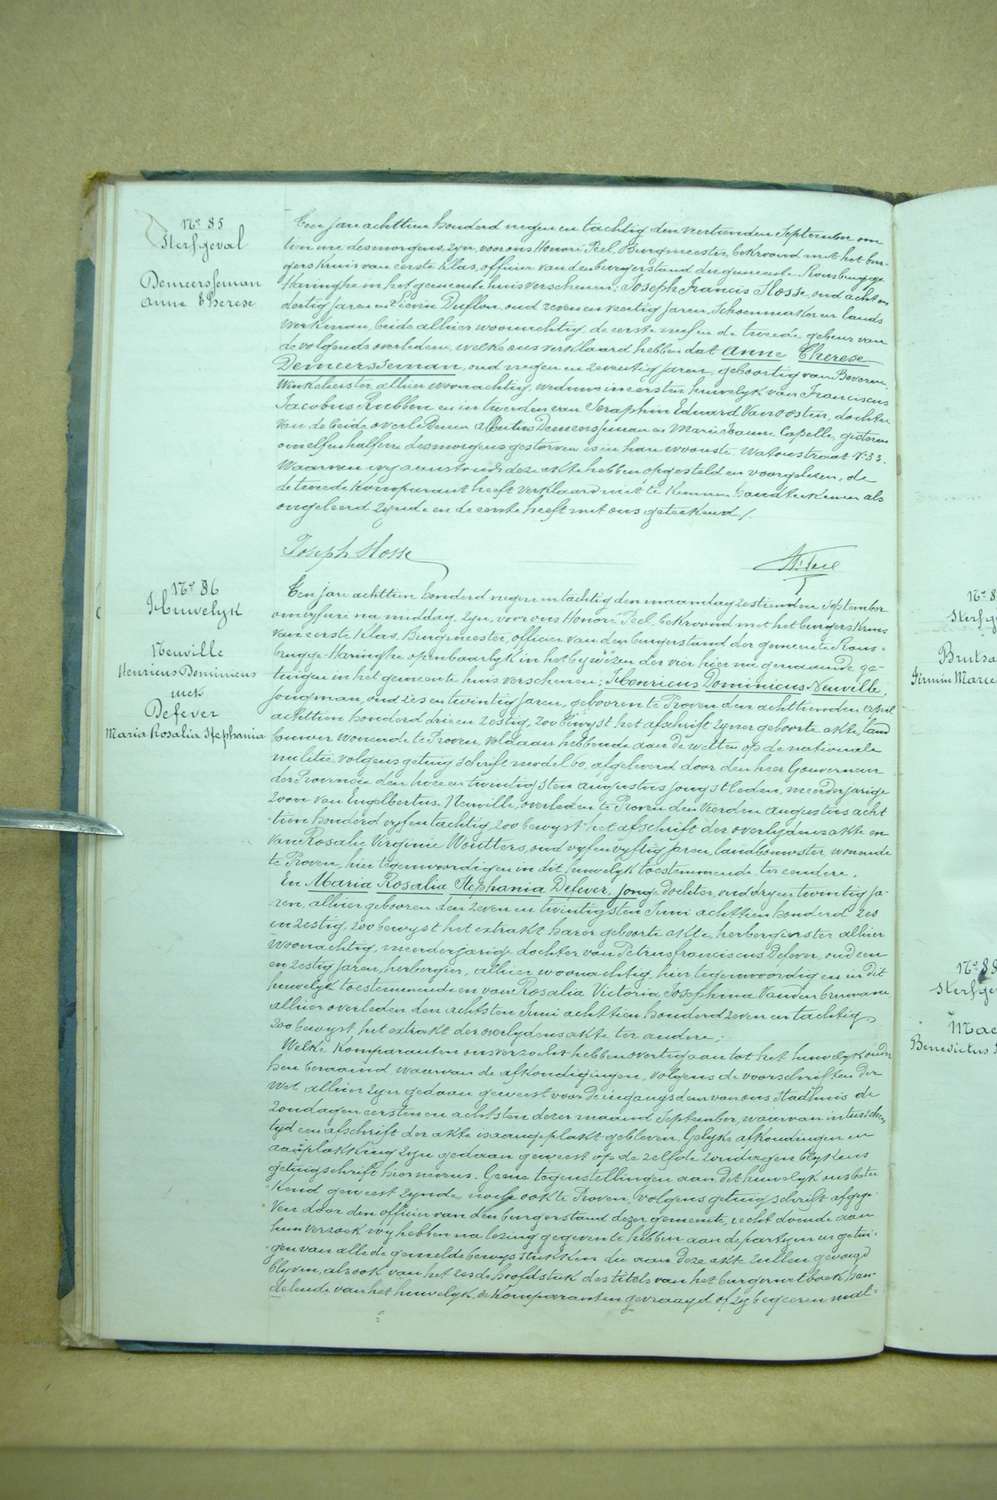 No 85
Sterfgeval
Demeersseman
Anne Therese
Een jare achttien honderd negen en tachtig den veertienden September om
tien ure des morgens, zyn, voor ons Honoré Peel, Burgmeester, bekroond met het bur-
gerskruis van eerste klas, officier van den burgerstand der gemeente Rousbrugge
Haringhe in het gemeentehuis verschenen: Joseph Francis Hosse, oud acht en
dertig jaren en Lievin Deflou, oud zeven en veertig jaren, Schoenmaker en lands
werkman, beide alhier woonachtig, de eerste neef en de tweede gebuer van
de volgende overledene, welke ons verklaard hebben dat Anne Therese
Demeersseman, oud negen en zeventig jaren, geboortig van Beveren,
Winkelierster, alhier woonachting, weduwe in eersten huwelyk van Franciscus
Jacobus Rubben en in tweeden van Seraphin Eduard Vanoosten, dochter
van de beide overledenen Albertus Demeersseman en Marie Jeanne Capelle, gisteren
om elf en half ure des morgens gestorven is in hare wooninge Watoustraat No 33.
Waarvan wy aenstonds deze akte hebben opgesteld en voorgelezen, de
de tweede komparant heeft verklaard niet te kunnen handteekenen als
ongeleerd zynde en de eerste heeft met ons geteekend /.
Joseph Hosse
H. Peel
No 86
Huwelyk
Neuville
Henricus Dominicus
met
Defever
Maria Rosalia Stephania
Een jare achttien honderd negen en tachtig den maandag zestienden September
om vyf ure na middag, zyn, voor ons Honoré Peel, bekroond met het burgerskruis
van eerste klas, Burgmeester, officier van den burgerstand der gemeente Rous-
brugge-Haringhe openbaarlyk in het bywezen der vier hier na genaamde ge-
tuigen in het gemeente huis verschenen: Henricus Dominicus Neuville,
jongman, oud zes en twintig jaren, geboren te Proven den achttienden April
achttien honderd drie en zestig, zoo bewyst het afschrift zyner geboorte akte, land
bouwer wonende te Proven, voldaan hebbende aan de wetten op de nationale
militie volgens getuigschrift model 60, afgeleverd door den heer Gouverneur
der Provincie den twee en twintigsten augustus jongstleden, meerderjarige
zoon van Engelbertus Neuville, overleden te Proven den vierden augustus acht
tien honderd vyf en tachtig, zoo bewyst het afschrift der overlydensakte en
van Rosalie Virginie Woutters, oud vyf en vyftig jaren, landbouwster, wonende
te Proven, hier tegenwoordig en in dit huwelyk toestemmende ter eendere.
En Maria Rosalia Stephania Defever, jonge dochter, oud dry en twintig ja-
ren, alhier geboren den zeven en twintigsten Juni achttien honderd zes
en zestig, zoo bewyst het extrakt harer geboorte akte, herbergierster alhier
woonachtig, meerderjarige dochter van Petrus franciscus Defever, oud een
en zestig jaren, herbergier, alhier woonachtig, hier tegenwoordig en in dit
huwelyk toestemmende en van Rosalia Victoria Josephina Vandenbruwane
alhier overleden den achtsten Juni achttien honderd zeven en tachtig
zoo bewyst het extrakt der overlydensakte ter andere;
Welke komparanten ons verzocht hebben overtegaan tot het huwelyk onder
hen beraamd waarvan de afkondigingen, volgens de voorschriften der
wet alhier zyn gedaan geweest voor de ingangsdeur van ons stadhuis de
zondagen eersten en achtsten dezer maand September, waarvan in tusschen
tyd een afschrift der akte is aangeplakt gebleven. Gelyke afkondingen en
aanplakking zyn gedaan geweest op de zelfde zondagen blykens
getuigschrift hiernevens. Geene tegenstellingen aan dit huwelyk ons beter
kend geweest zynde, noch ook te Proven, volgens getuigschrift afgege
ven door den officier van den burgerstand dezer gemeente, recht doende aan
hun verzoek wy hebben na lezing gegeven te hebben aan de partyen en getui-
gen van alle de gemelde bewysstukken die aan deze akte zullen gevoegd
blyven, als ook van het zesde hoofdstuk des titels van het burgerwetboek han-
delende van het huwelyk, de komparanten gevraagd of zy begeeren malk-
No 8
Sterfge
Brutsa
Firmin Marie
No 88
Sterfge
Mae
Benedictus